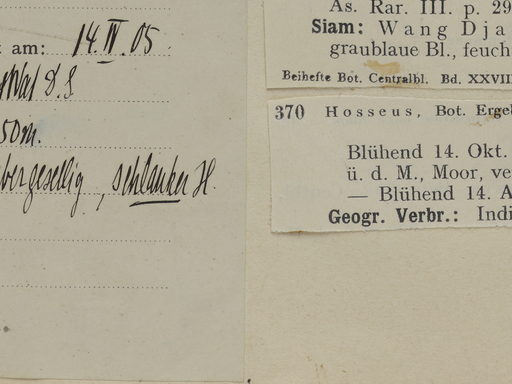 am: 14.IV.05
50m.
schlanker H.
As. Rar. III. p. 29
Siam: Wang Dja
graublaue Bl., feuch
Beihefte Bot. Centralbl. Bd. XXVIII
370 Hosseus, Bot. Ergeb
Blühend 14. Okt.
ü. d. M., Moor, ve
— Blühend 14. A
Geogr. Verbr.: Indi